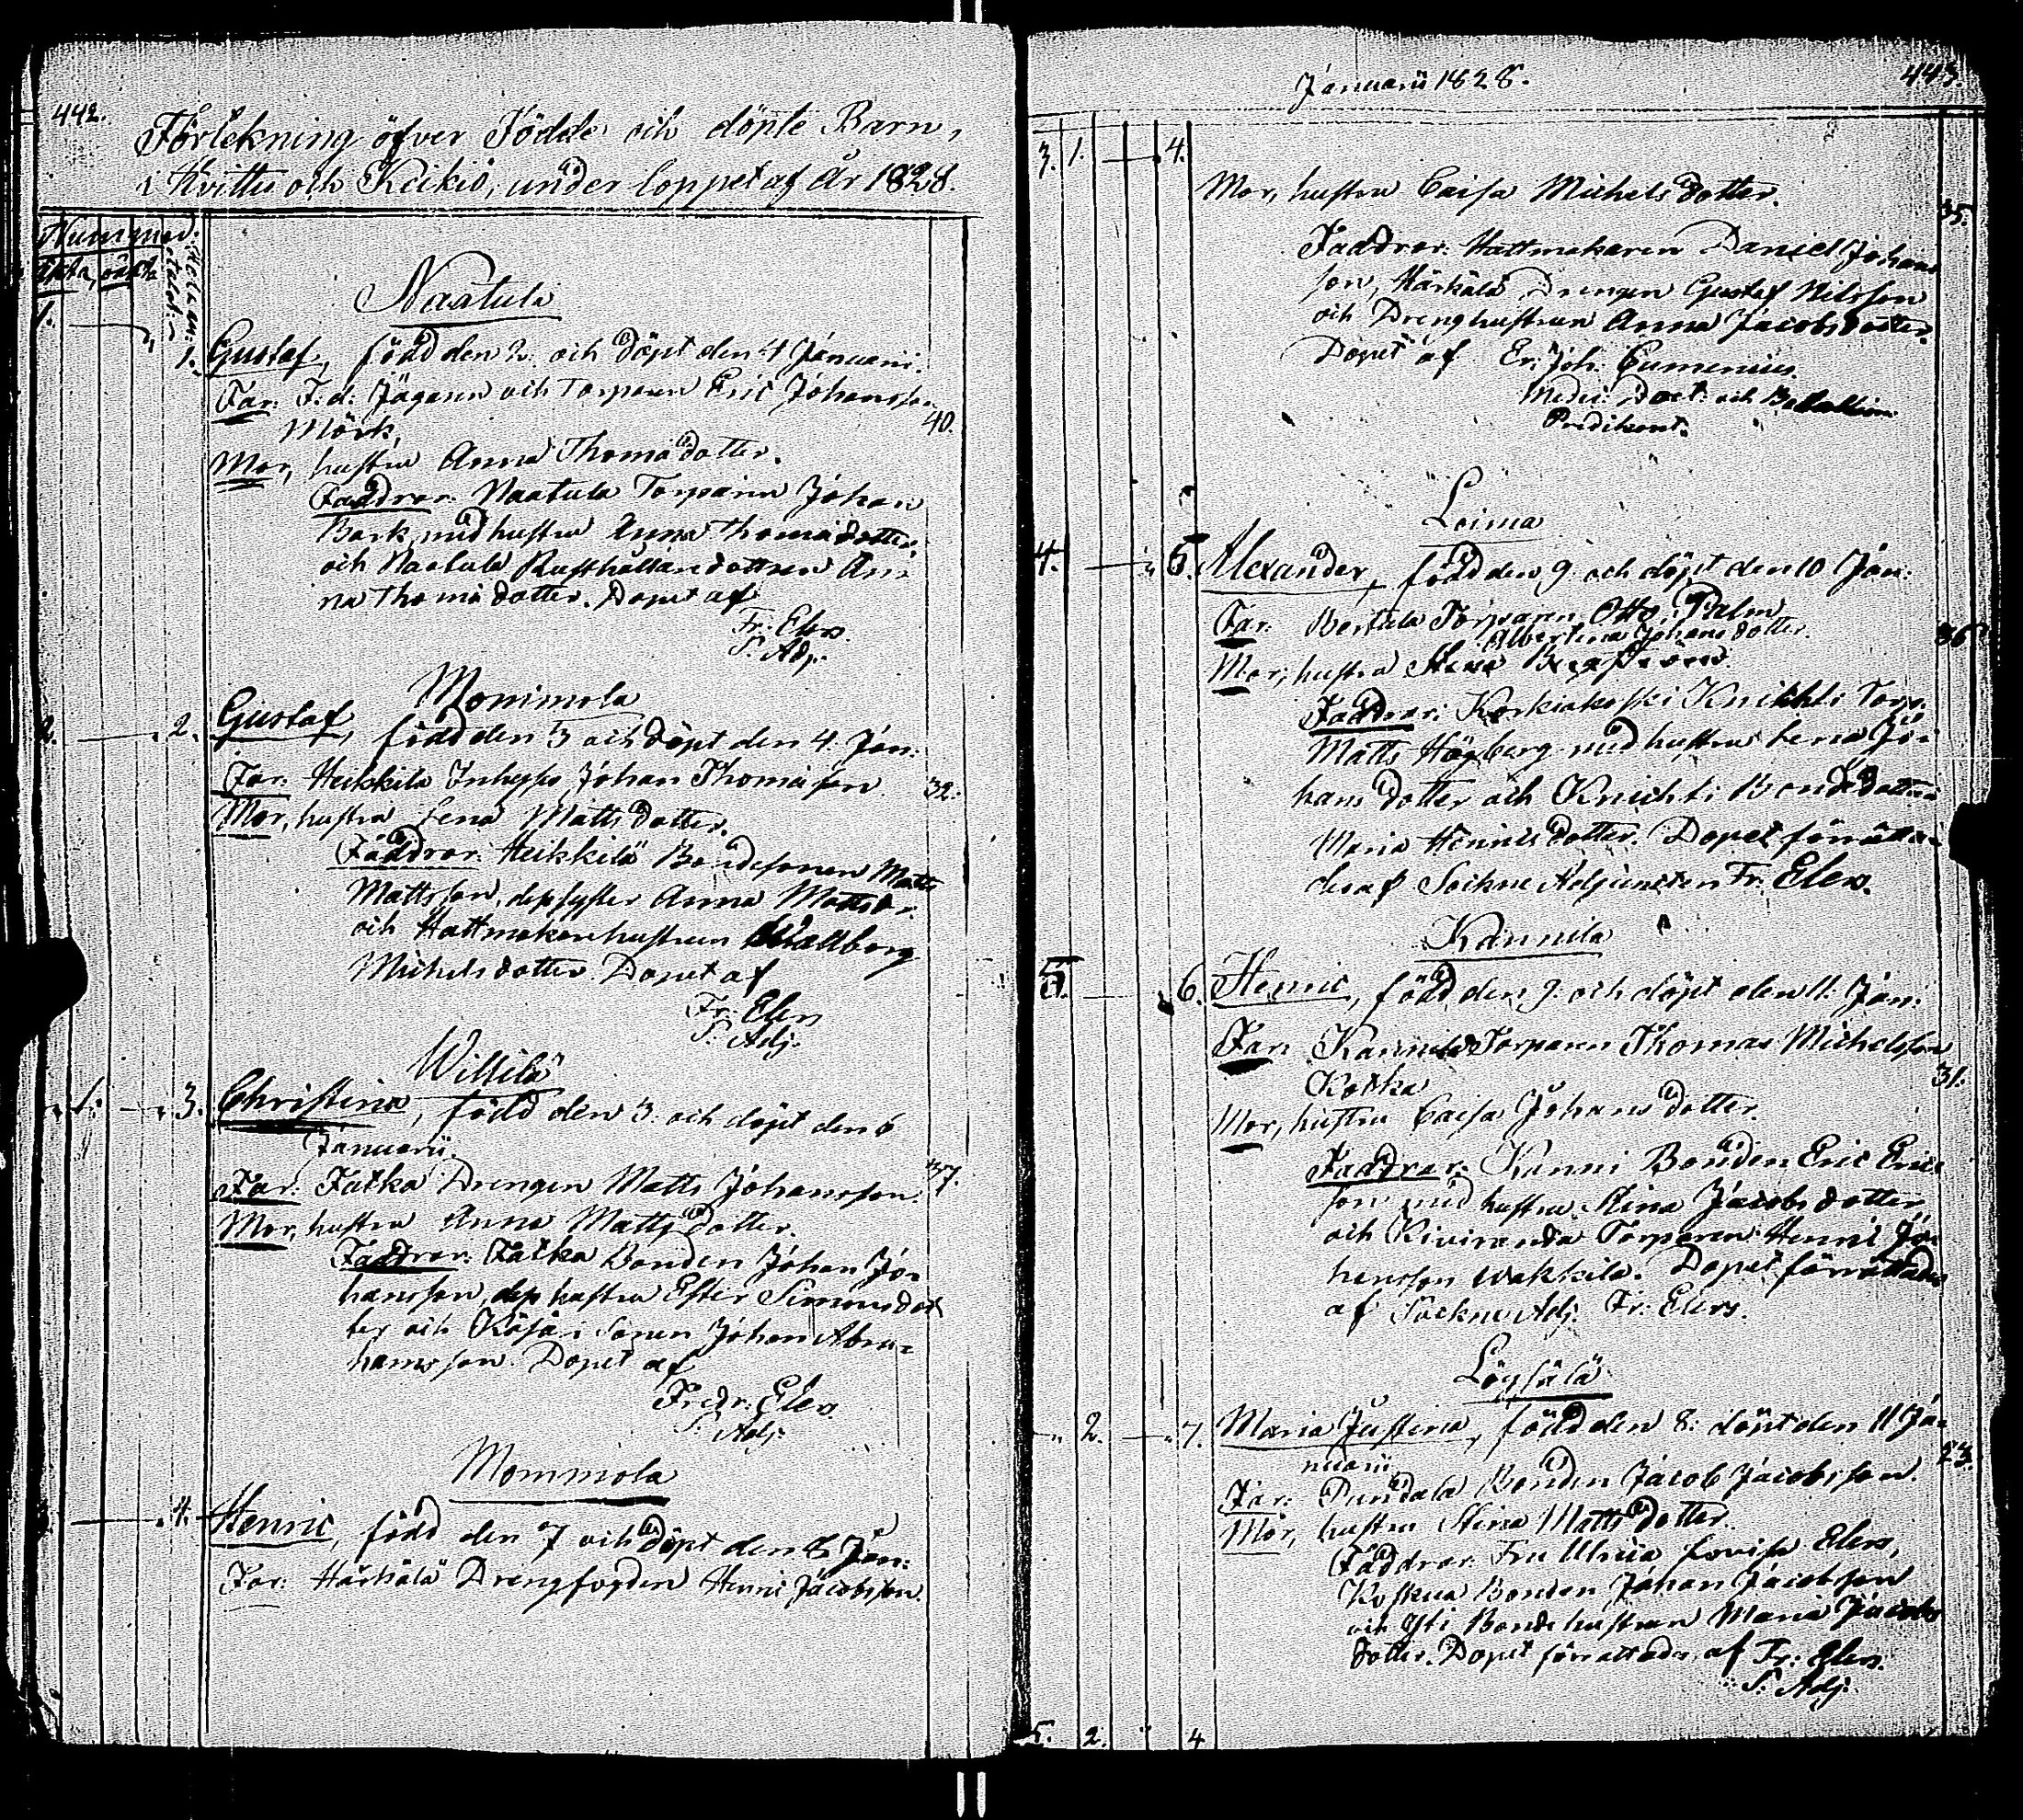 442.
Förtekning öfver Födde och döpte Barn,
i Hvittis och Keikiö, under loppet af år 1828.
Nummer.
äkta, oäkta
Naatula
1. 1. Gustaf, född den 2. och döpt den 4 Januari.
Far: F: d: Jägaren och Torparen Eric Johansson
Mörk, 40.
Mor, hustru Anna Thomædotter.
Faddrar: Naatula Torparen Johan
Bark, med hustru Anna Thomædotter,
och Naatula Rusthållaredottren An-
na Thomædotter. Dopet af
Fr: Elers.
S. Adj:
Mommola
2. 2. Gustaf, född den 3 och döpt den 4. Jan:
Far: Heikkilä Inhyses Johan Thomasson. 32.
Mor, hustru Lena Mattsdotter.
Faddrar: Heikkilä Bondesonen Matts
Mattsson, dess syster Anna Mattsdr.
och Hattmakarehustrun Wallborg
Michelsdotter. Dopet af
Fr: Elers
S. Adj:
Willilä
1. 3. Christina, född den 3. och döpt den 6
Januarii.
Far: Fatka Drengen Matts Johansson. 37.
Mor, hustru Anna Mattsdotter.
Faddrar: Fatka Bonden Johan Jo-
hansson, dess hustru Ester Simonsdot
ter och Sonen Johan Abra-
hamsson. Dopet af
Fredr: Elers.
S. Adj:
Mommola
4. Henric, född den 7 och döpt den 8 Jan:
Far: Härkälä Drengfogden Henric Jacobsson.
Januarii 1828. 443.
3. 1. 4.
Mor, hustru Caisa Michelsdotter. 35.
Faddrar: Hattmakaren Daniel Johans
son, Härkälä Drengen Gustaf Nilsson
och Drenghustrun Anna Jacobsdotter.
Dopet af Er: Joh: Eumenius.
Medic: Doct: och Bataillons
Predikant.
Loima
4. 5. Alexander, född den 9. och döpt den 10 Jan:
Far: Bertula Torparen Otto Palm
Albertina Johansdotter. 36
Mor, hustru
Faddrar: Korkiakoski Knihti Torp:
Matts Högberg med hustru Lena Jo-
hansdotter och Knichti Bondedottren
Maria Henricsdotter. Dopet förrätta-
des af Sockne Adjuncten Fr: Elers.
Kannila
5. 6. Henric, född den 9. och döpt den 11. Jan:
Far: Kannila Torparen Thomas Michelsson
Kotka 31.
Mor, hustru Caisa Johansdotter.
Faddrar: Kanni Bonden Eric Erics
son med hustru Stina Jacobsdotter
och Kiviranda Torparen Henric Jo-
hansson Wakkila. Dopet förrättades
af Sockne Adj: Fr: Elers.
Löysälä
2. 7. Maria Justina, född den 8: döpt den 11 Ja-
nuarii 23.
Far: Pundala Bonden Jacob Jacobsson.
Mor, hustru Stina Mattsdotter.
Faddrar: Fru Ulrica Lovisa Elers,
Koskua Bonden Johan Jacobsson
och Isti Bondehustrun Maria Jacobs
dotter. Dopet förrättades af Fr: Elers.
S. Adj:
5. 2. 4